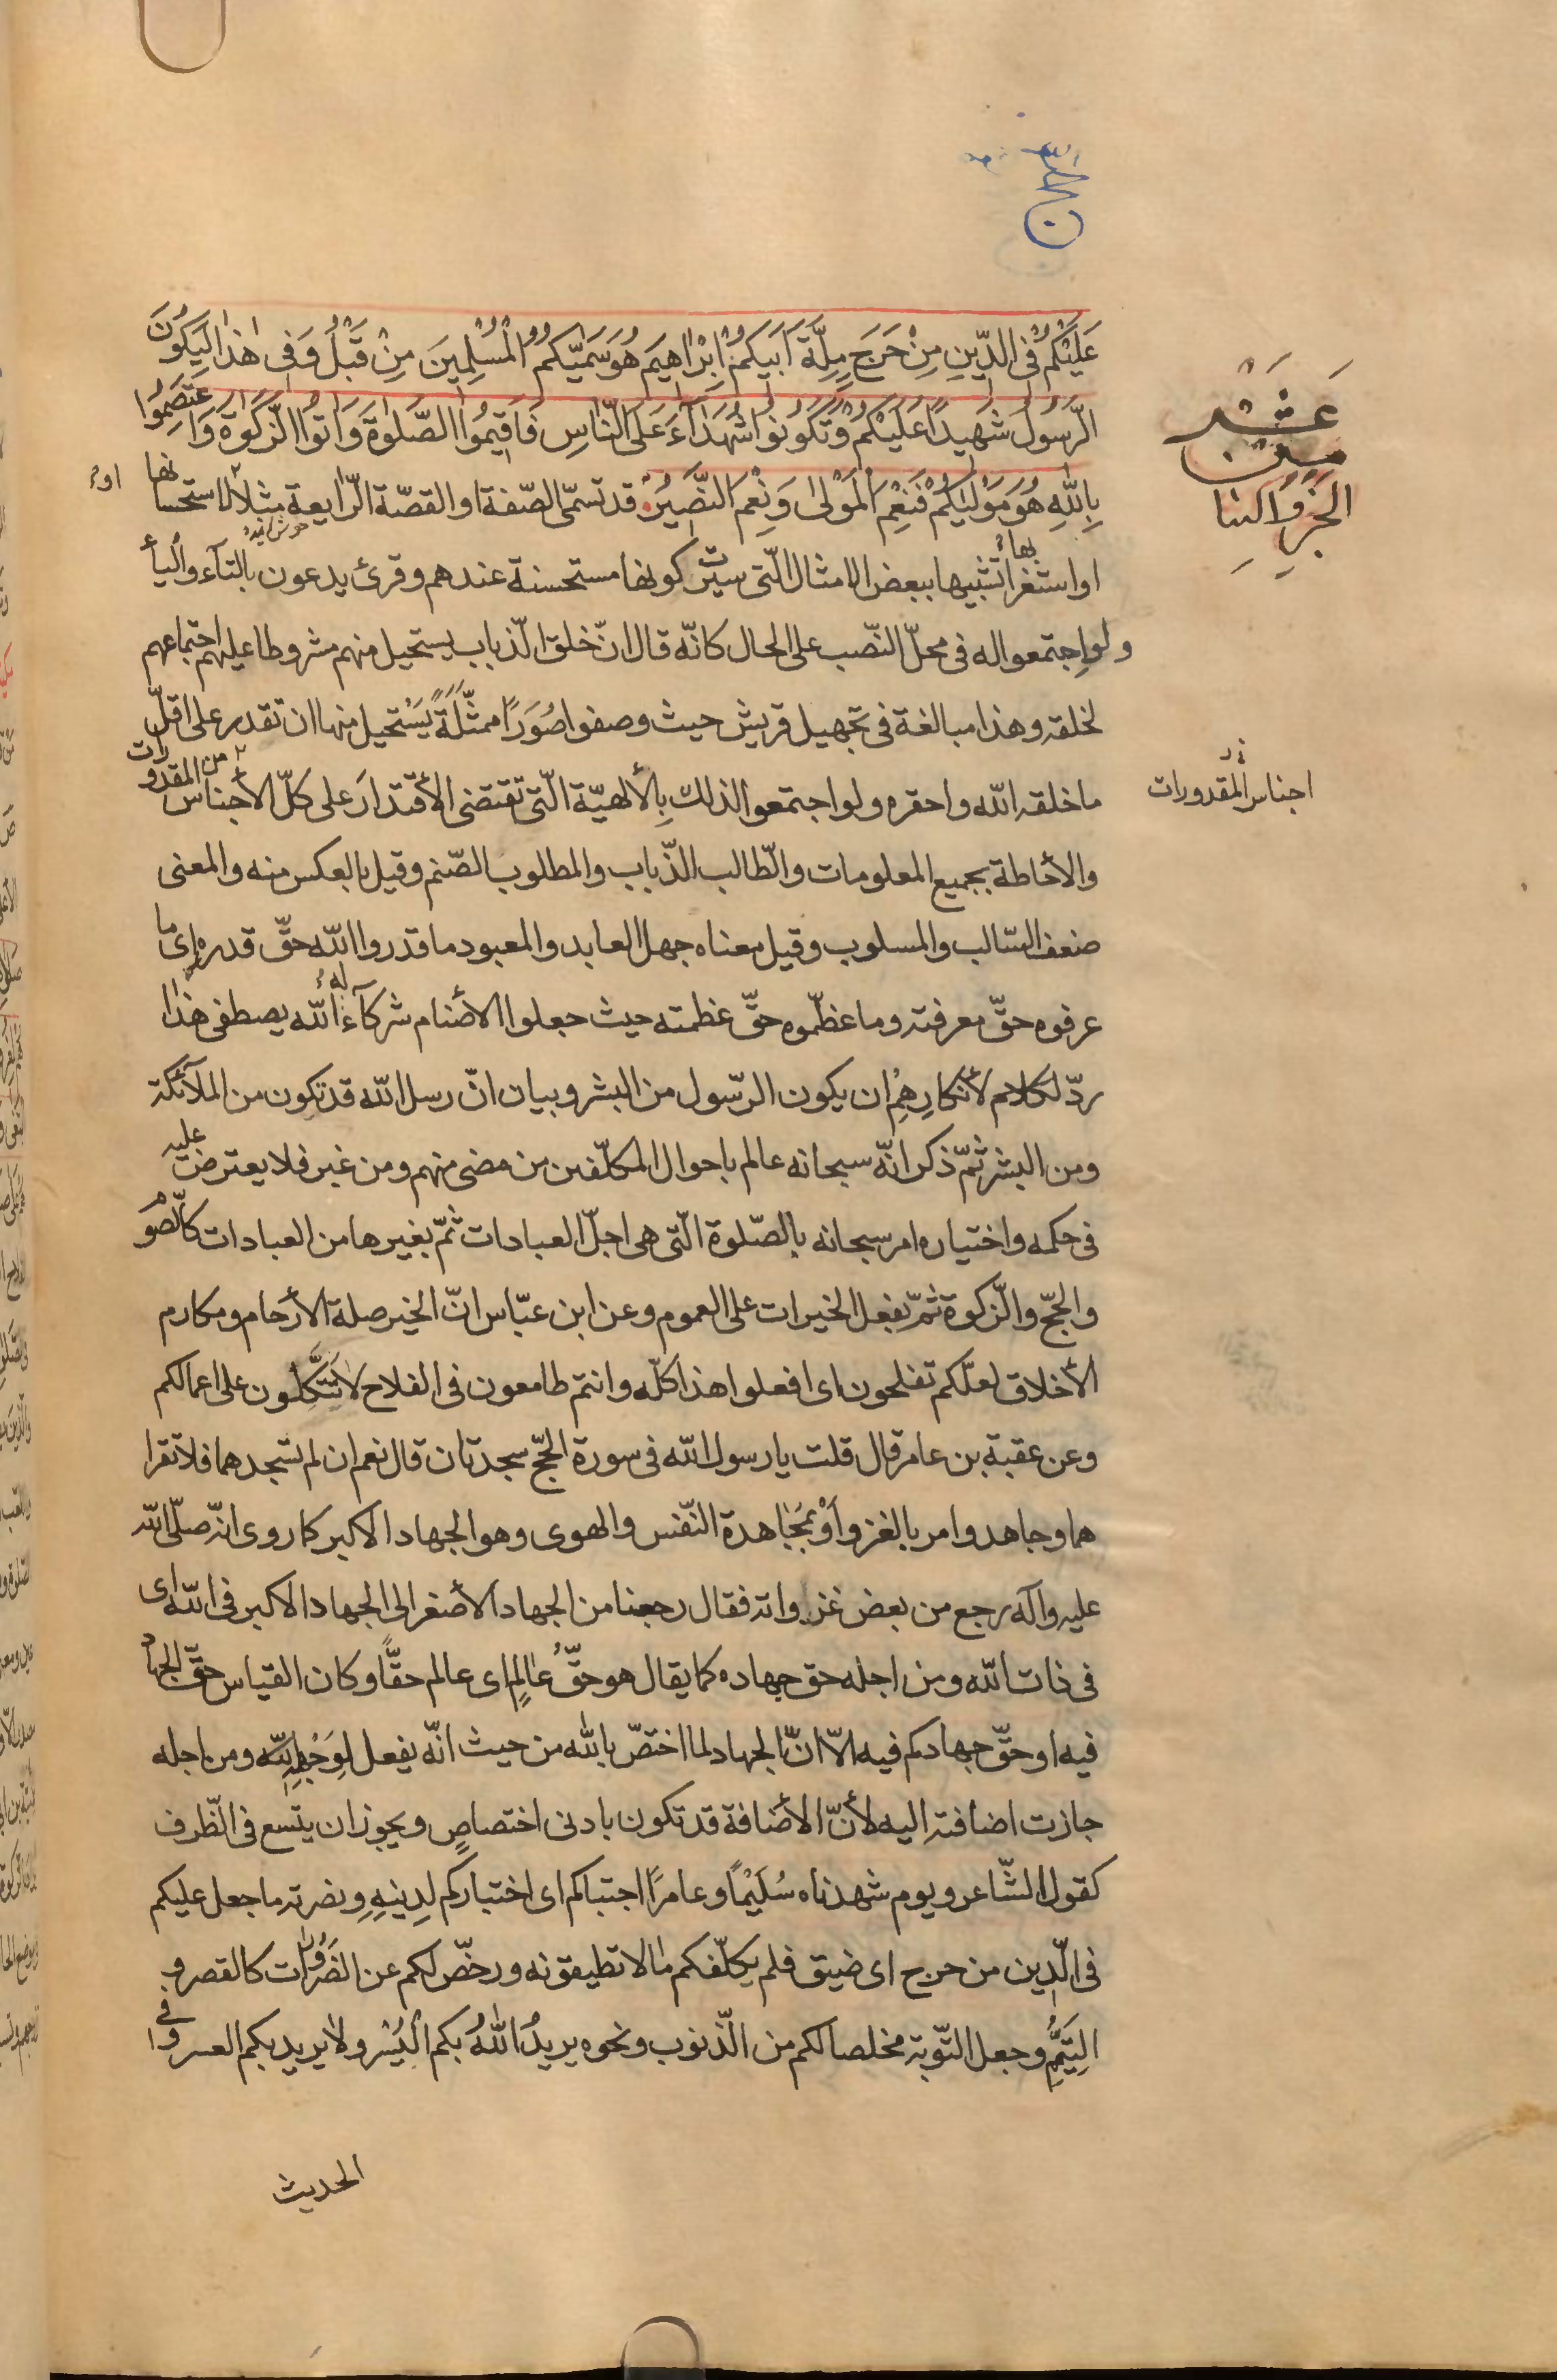 عَلَيْكُمْ فِى الدِّينِ مِنْ حَرَجٍ مِلَّةَ اَبَيكُمْ اِبْرٰاهِيَم هُوَ سَمّيٰكُمُ الْمُسْلِمِينَ مِنْ قَبْلُ وَ فِى هٰذٰا لِيَكُونَ
الرَّسُولُ شَهِيدًا عَلَيْكُمْ وَ تَكُونُوا شُهَدٰآءَ عَلَى النّٰاسِ فَاَقِيمُوا الصَّلٰوةَ وَ اٰتُوا الزَّكٰوةَ وَ اعْتَصِمُوا
بِاللّٰهِ هُوَ مَوْلٰيكُمْ فَنِعْمَ الْمَوْلىٰ وَ نِعْمَ النَّصِيرُ قد تسمّى الصّفة او القصّة الرّايعة مثلا لاستحسانها
او استغرابها تشبيها ببعض الامثال الّتى سيّرت كونها مستحسنة عندهم و قرئ يدعون بالتآء و اليآء
و لو اجتمعوا له فى محلّ النّصب على الحال كانّه قال انّ خلق الذّباب يستحيل منهم مشروطا عليهم اجتماعهم
لخلقه و هذا مبالغة فى تجهيل قريش حيث وصفوا صُوَرًا ممثّلَةً يَسْتحيل منها ان تقدر على اقلّ
ما خلقه اللّه و احقره و لو اجتمعوا لذلك بِالألهيّة الّتى تقتضى الأقتدارَ على كلّ الأجناس من المقدورات
و الأحاطة بجميع المعلومات و الطّالب الذّباب و المطلوب الصّنم و قيل بالعكس منه و المعنى
ضعف السّالب و المسلوب و قيل معناه جهل العابد و المعبود ما قدروا اللّه حقّ قدره اى ما
عرفوه حقّ معرفته و ما عظّموه حقّ عظمته حيث جعلوا الأصنام شركآء له اللّه يصطفى هٰذا
ردّ لكلامهم لأنكارِهِمْ ان يكون الرّسول من البشر و بيان انّ رسل اللّه قد تكون من الملآئكة
و من البشر ثمّ ذكر انّه سبحانه عالم باحوال المكلّفين من مضى منهم و من غبر فلا يعترض عليه
فى حكمه و اختياره امر سبحانه بالصّلوة الّتى هى اجلّ العبادات ثمّ بغيرها من العبادات كالصّوم
و الحجّ و الزّكوة ثمّ بفعل الخيرات على العموم و عن ابن عبّاس انّ الخير صلة الأرحام و مكارم
الأخلاق لعلّكم تفلحون اى افعلوا هذا كلّه و انتم طامعون فى الفلاح لا تَتَّكِلُون على اعمالكم
و عن عقبة بن عامر قال قلت يا رسول اللّه فى سورة الحجّ سجدتان قال نعم ان لم تسجدهما فلا تقرا
هما و جاهدوا امر بالغزو اَوْ بمُجٰاهدة النّفس و الهوى و هو الجهاد الاكبر كما روى انّه صلّى اللّه
عليه و آله رجع من بعض غزواته فقال رجعنا من الجهاد الأصغر الى الجهاد الاكبر فى اللّه اى
فى ذات اللّه و من اجله حق جهاده كما يقال هو حقُّ عٰالِمٍ اى عالم حقًّا و كان القياس حقّ الجهاد
فيه او حقّ جهادكم فيه الّا انّ الجهاد لما اختصّ باللّٰه من حيث انّه يفعل لِوَجْهِ اللّه و من اجله
جازت اضافته اليه لأنّ الأضافة قد تكون بادنى اختصاصٍ و يجوز ان يتّسع فى الظّرف
كقول الشّاعر و يوم شهدناه سُلَيْمًا و عامرًا اجتباكم اى اختباركم لِدِينِهِ و نصرته ما جعل عليكم
فى الدّين من حرج اى ضيق فلم يكلّفكم مٰا لا تطيقونه و رخّص لكم عن الضّرُورٰات كالقصر و
التيَمُّمِ و جعل التّوبة مخلصا لكم من الذّنوب و نحوه يريدُ اللّٰهُ بكم الْيُسْر و لا يريد بكم العسر و فى
الحديث
عَشَرَ
مِنَ
الْجُزْوِ
اجناس المقدورات